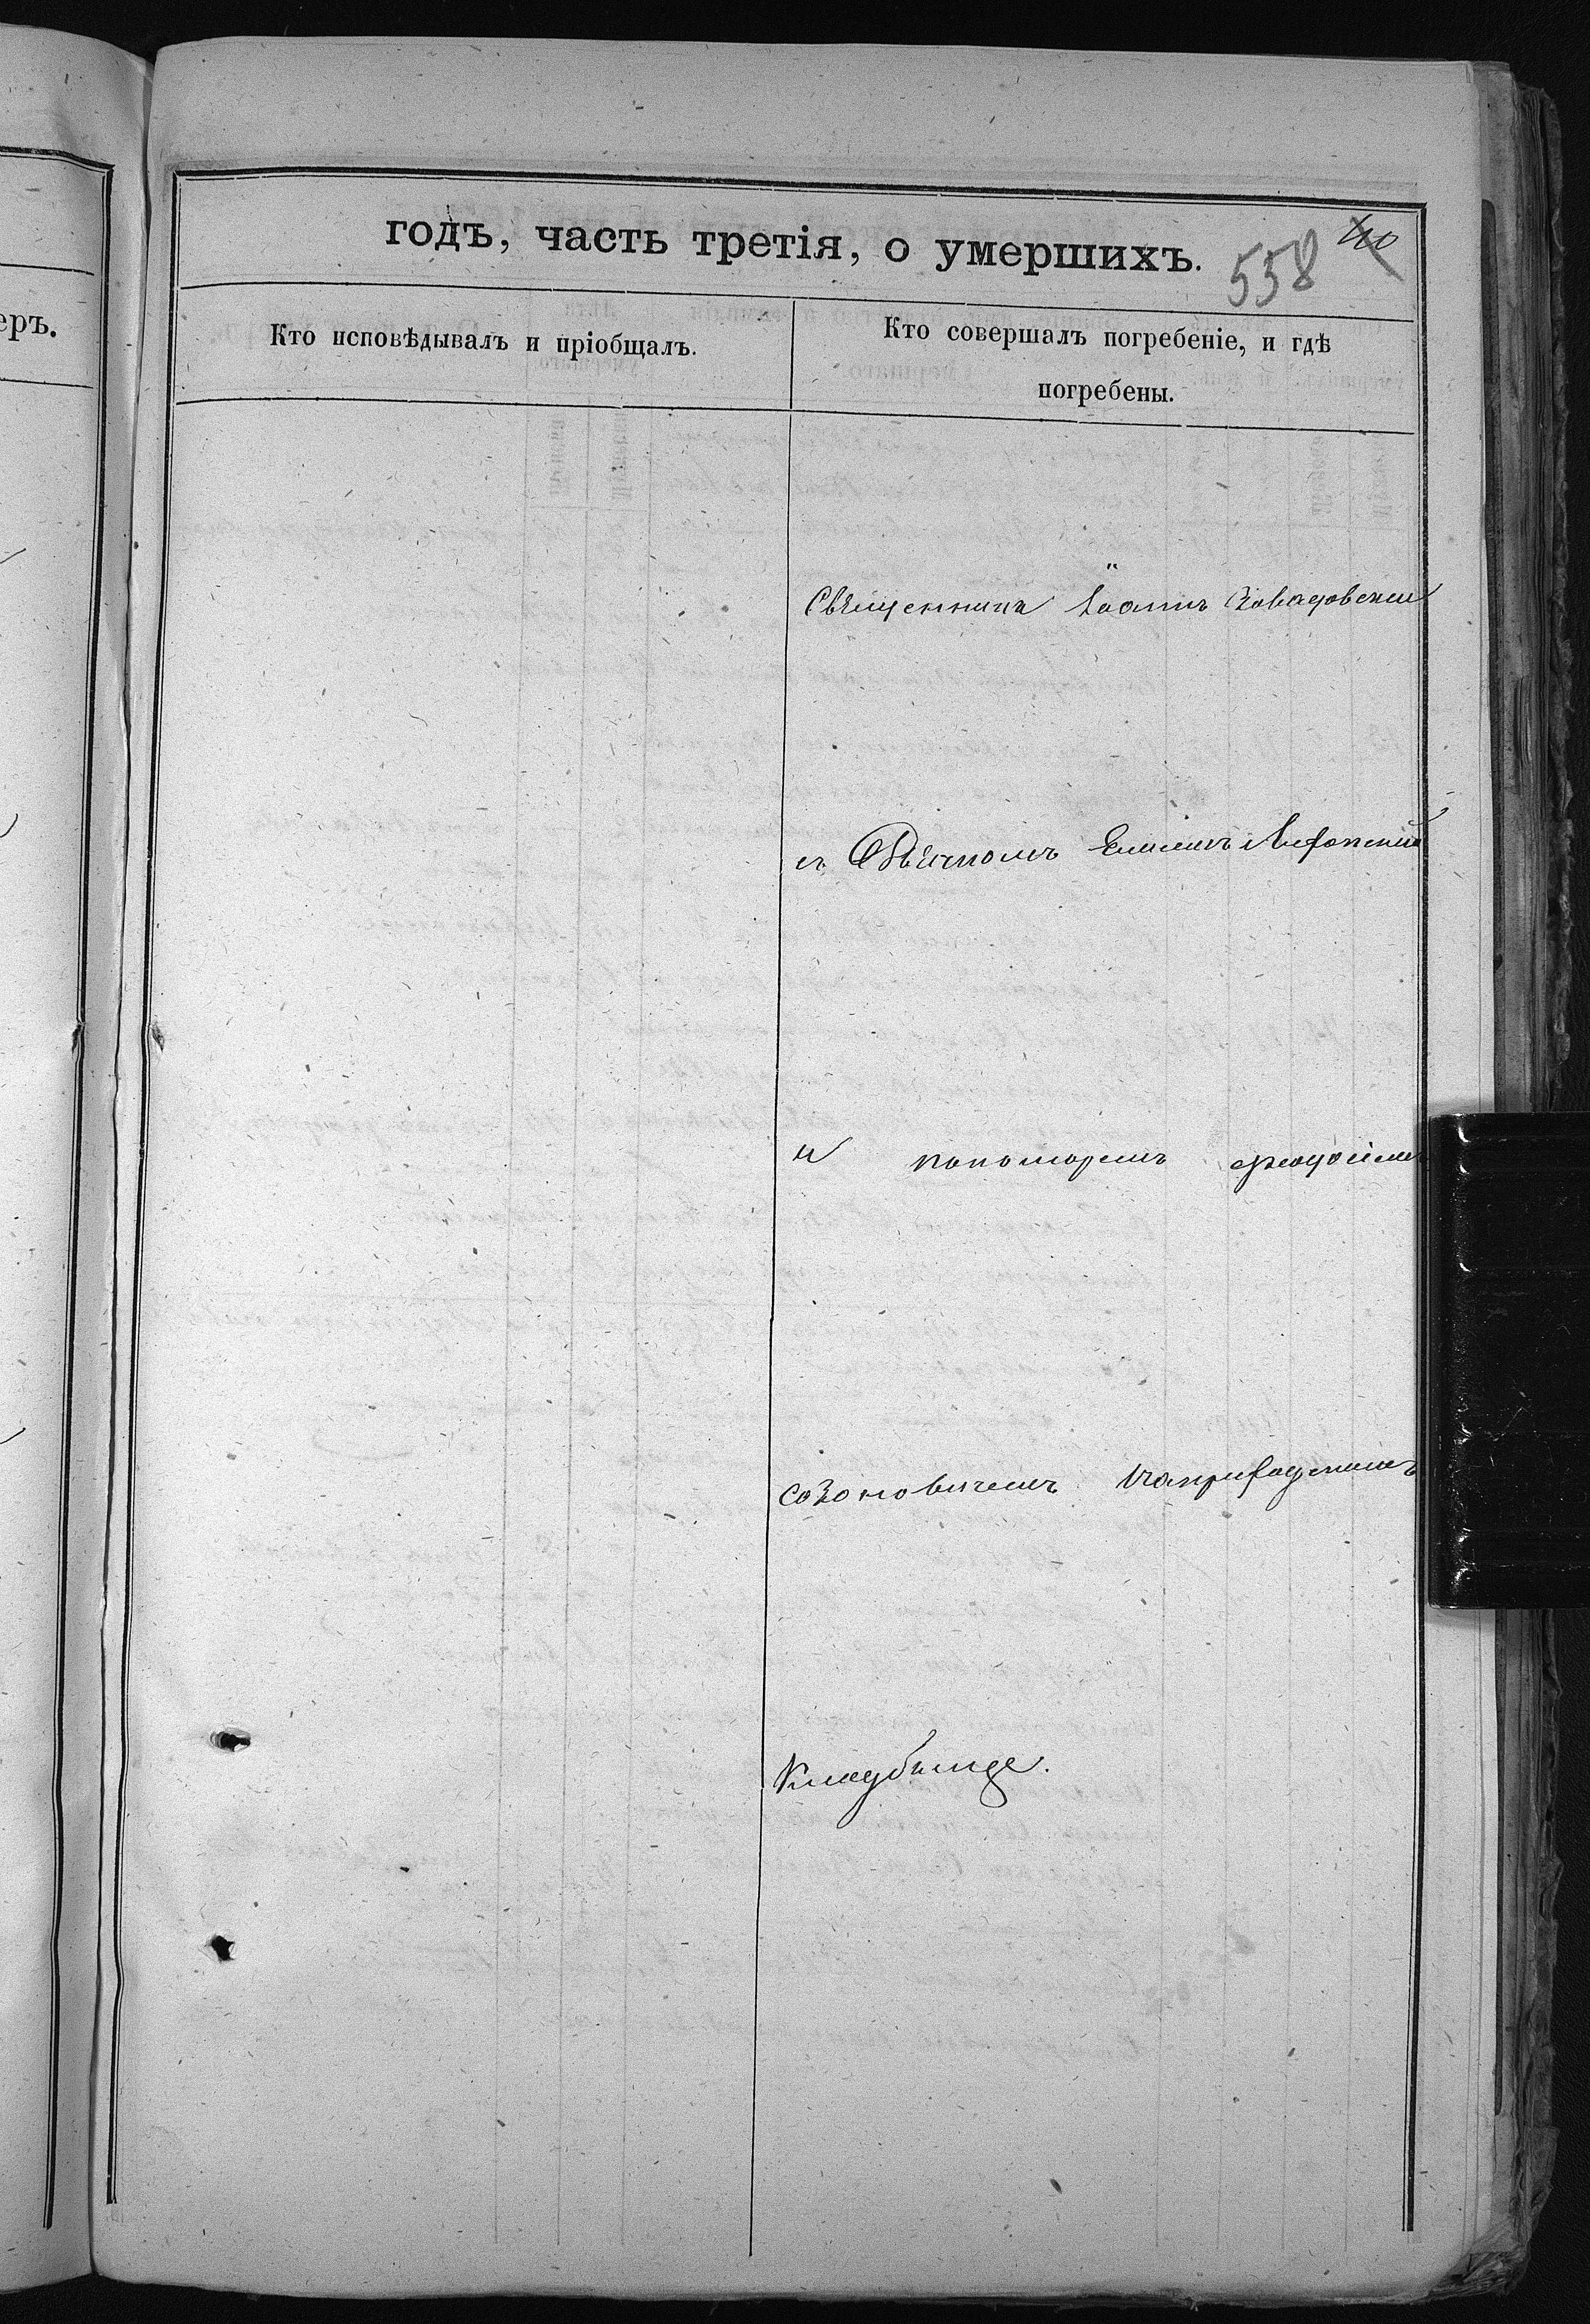 еръ.
годъ, часть третія, о умершихъ.
558
40
Кто исповѣдывалъ и пріобщалъ.
Кто совершалъ погребеніе, и гдѣ
погребены.
Священникъ Іоаннъ Завадовскій
съ Дьячкомъ
и пономаремъ
Созоновичемъ
Кладбище.